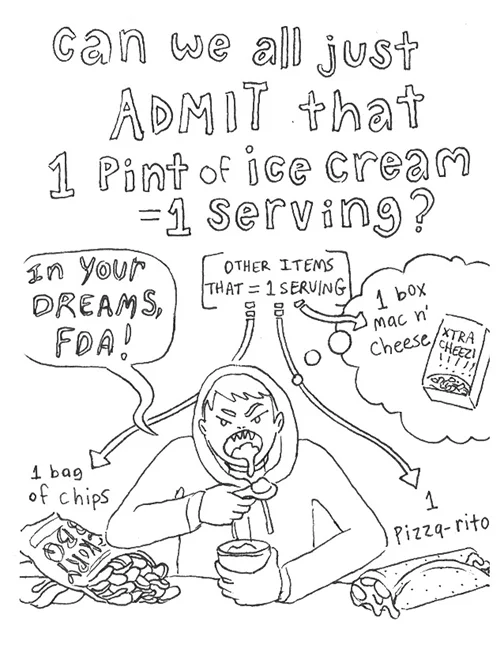 can we all just
ADMIT that
1 Pint of ice cream
=1 serving?
In your
DREAMS,
FDA!
OTHER ITEMS
THAT = 1 SERVING
1 box
mac n'
cheese
XTRA
CHEEZ!
!!!!!
1 bag
of chips
1
Pizza-rito